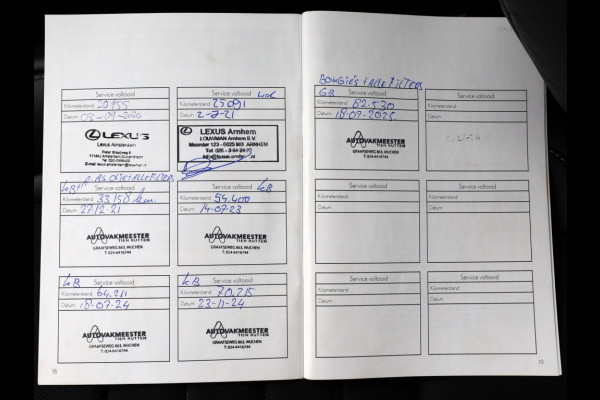 Service voltooid
Kilometerstand 20.955
Datum 03-09-2020
LEXUS
Lexus Amsterdam
Service voltooid
Kilometerstand 25091
Datum 2-7-21
LEXUS Arnhem
LOUWMAN Arnhem B.V.
Meander 123 - 6825 MB ARNHEM
Service voltooid
Kilometerstand 33158 km.
Datum 27-12-21
AUTOVAKMEESTER
TIEN RUTTEN
GRAAFSEWEG 863, WIJCHEN
T: 024-6416744
KB
Service voltooid
Kilometerstand 54.400
Datum 14-07-23
AUTOVAKMEESTER
TIEN RUTTEN
GRAAFSEWEG 863, WIJCHEN
T: 024-6416744
KB
Service voltooid
Kilometerstand 64.211
Datum 18-07-24
AUTOVAKMEESTER
TIEN RUTTEN
GRAAFSEWEG 863, WIJCHEN
T: 024-6416744
KB
Service voltooid
Kilometerstand 70.715
Datum 23-11-24
AUTOVAKMEESTER
TIEN RUTTEN
GRAAFSEWEG 863, WIJCHEN
T: 024-6416744
18
BOUGIE'S + ALLE FILTERS
GB
Service voltooid
Kilometerstand 82.530
Datum 18-09-2025
AUTOVAKMEESTER
TIEN RUTTEN
GRAAFSEWEG 863, WIJCHEN
T: 024-6416744
Service voltooid
Kilometerstand
Datum
Service voltooid
Kilometerstand
Datum
Service voltooid
Kilometerstand
Datum
Service voltooid
Kilometerstand
Datum
Service voltooid
Kilometerstand
Datum
19